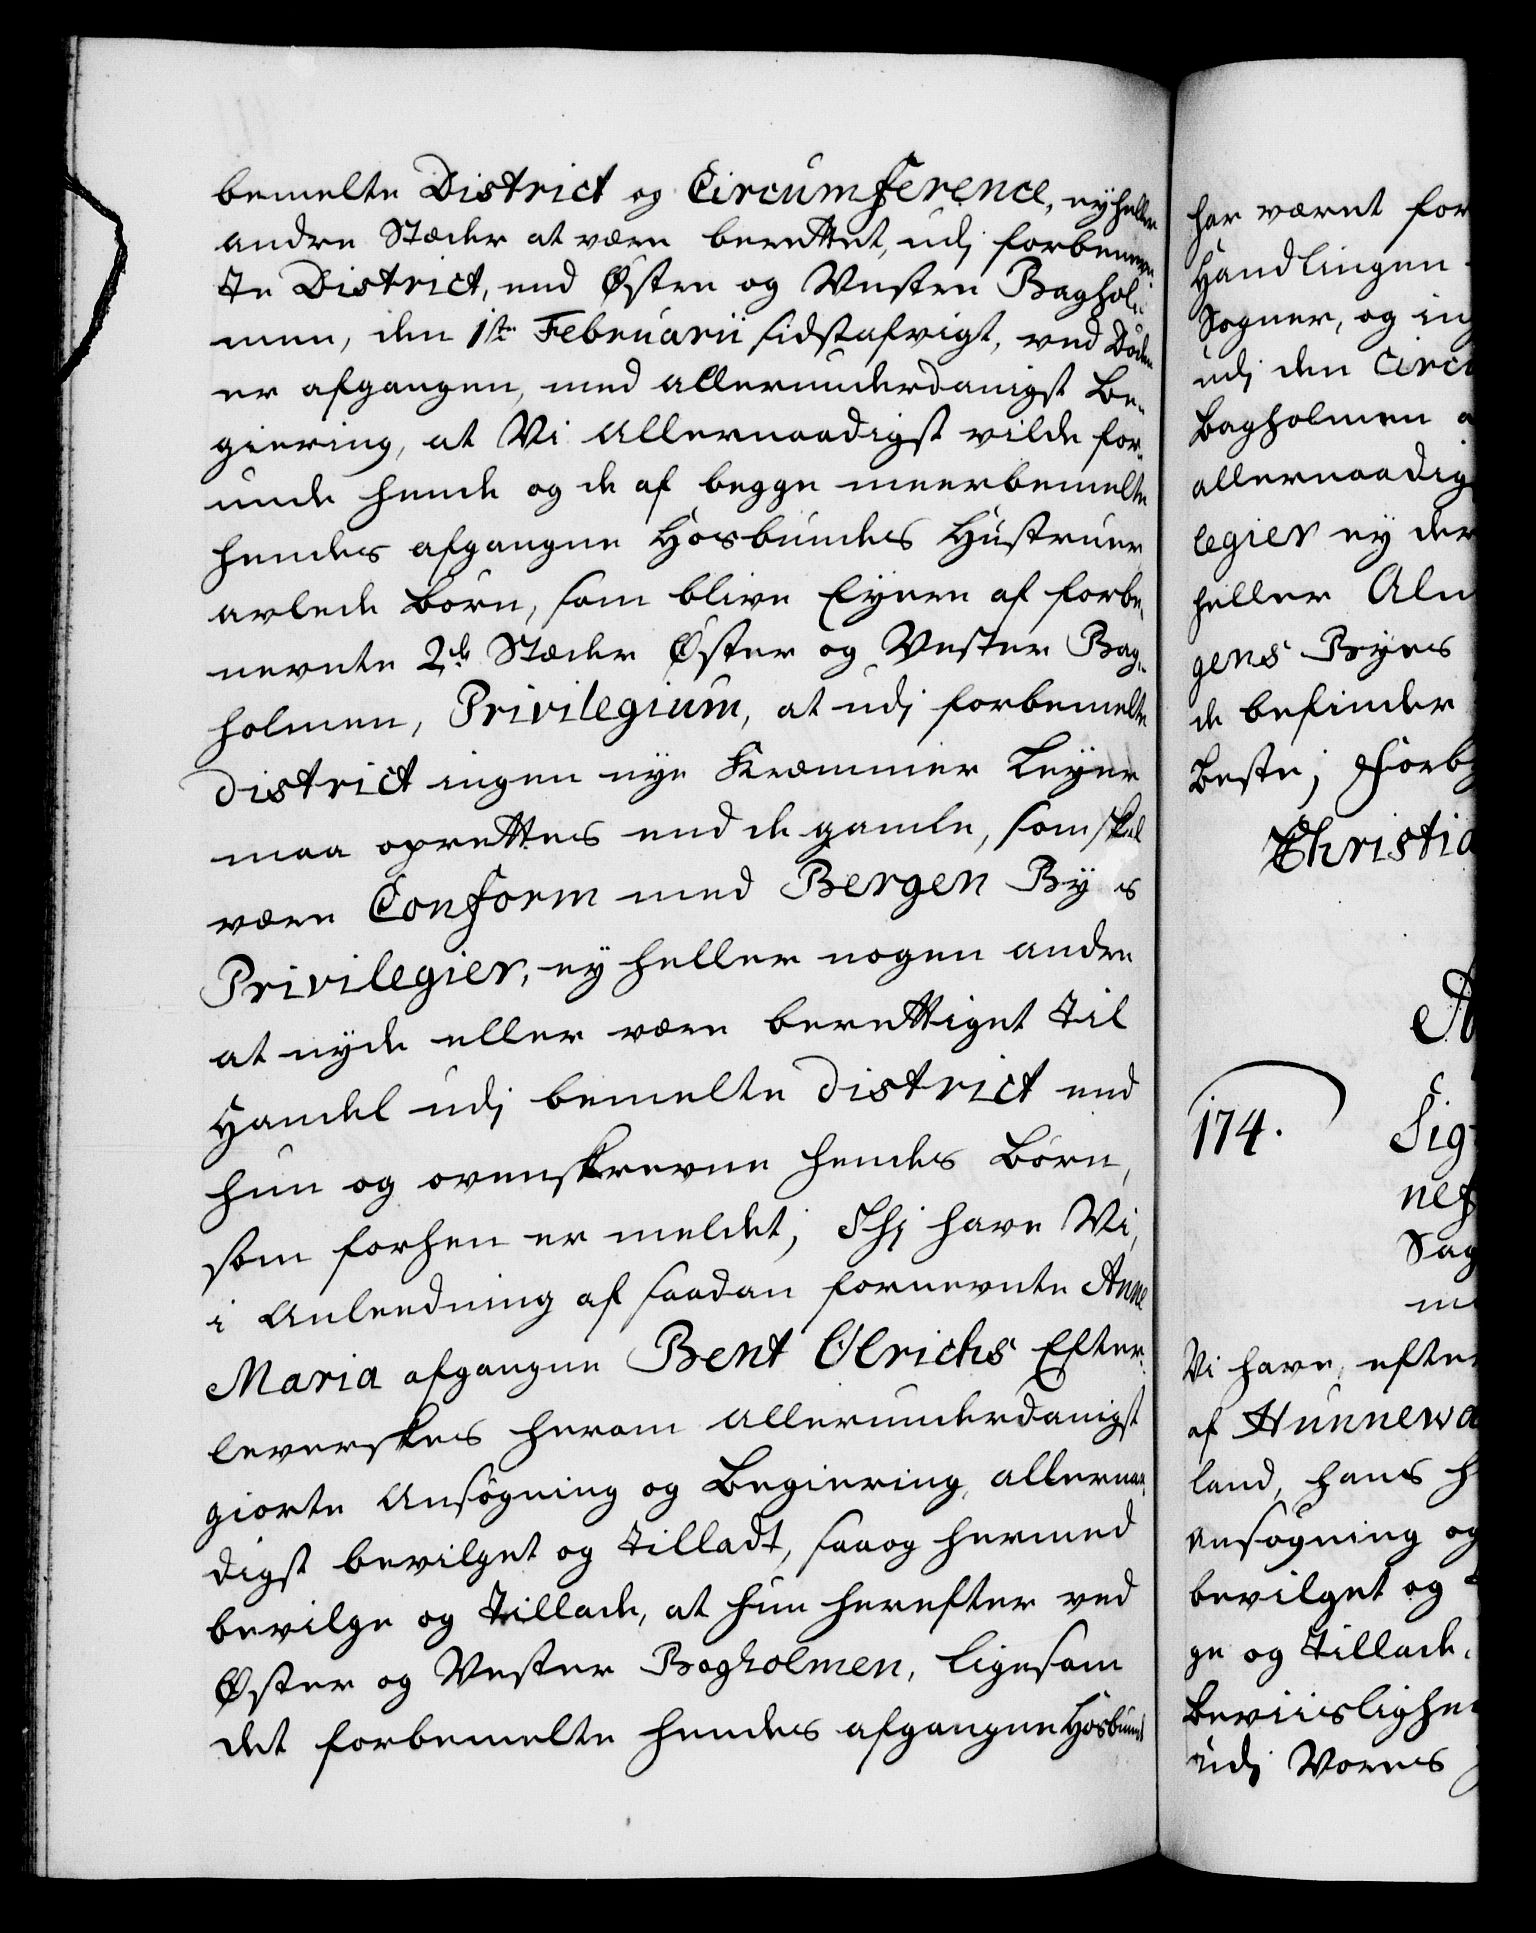 bemelte District og Circumference, ey heller
andre Stæder at være berettet, udj forbenevn-
te District, end Østre og Vestre Baghol-
men, den 1ste Februarii sidstafvigt, ved Døden
er afgangen, med allerunderdanigst Be-
giering, at Vi Allernaadigst vilde for-
unde hende og de af begge meerbemelte
hendes afgangne Hosbundes Hustruer
avlede Børn, som blive Eyere af forbe-
nevnte 2de Stæder Øster og Vester Bag-
holmen, Privilegium, at udj forbemelte
District ingen nye Kræmmer Leyer
maa oprettes end de gamle, som skal
være Conform med Bergen Byes
Privilegier, ey heller nogen andre
at nyde eller være berettiget til
Handel udj bemelte District end
hun og ovenskrevne hendes Børn,
som forhen er meldet; Thj have Vi,
i Anleedning af saadan fornevnte Anne
Maria afgangne Bent Ulrichs Efter-
leverskes herom allerunderdanigst
giorte Ansøgning og Begiering, allernaa-
digst bevilget og tilladt, saaog hermed
bevilge og tillade, at hun herefter ved
Øster og Vester Bagholmen, ligesom
det forbemelte hendes afgangne Hosbund
har været for
Handlingen
Sogner, og in
udj den Circu
Bagholmen a
allernaadig
legier ey der
heller Alm
gens Byes
de befinder
beste; Forby
Christia
174.
Sig
nef
Sag
Vi have, efter
af Hunnewa
land, hans h
Ansøgning og
bevilget og
ge og tillade,
Beviislighe
udj Vores